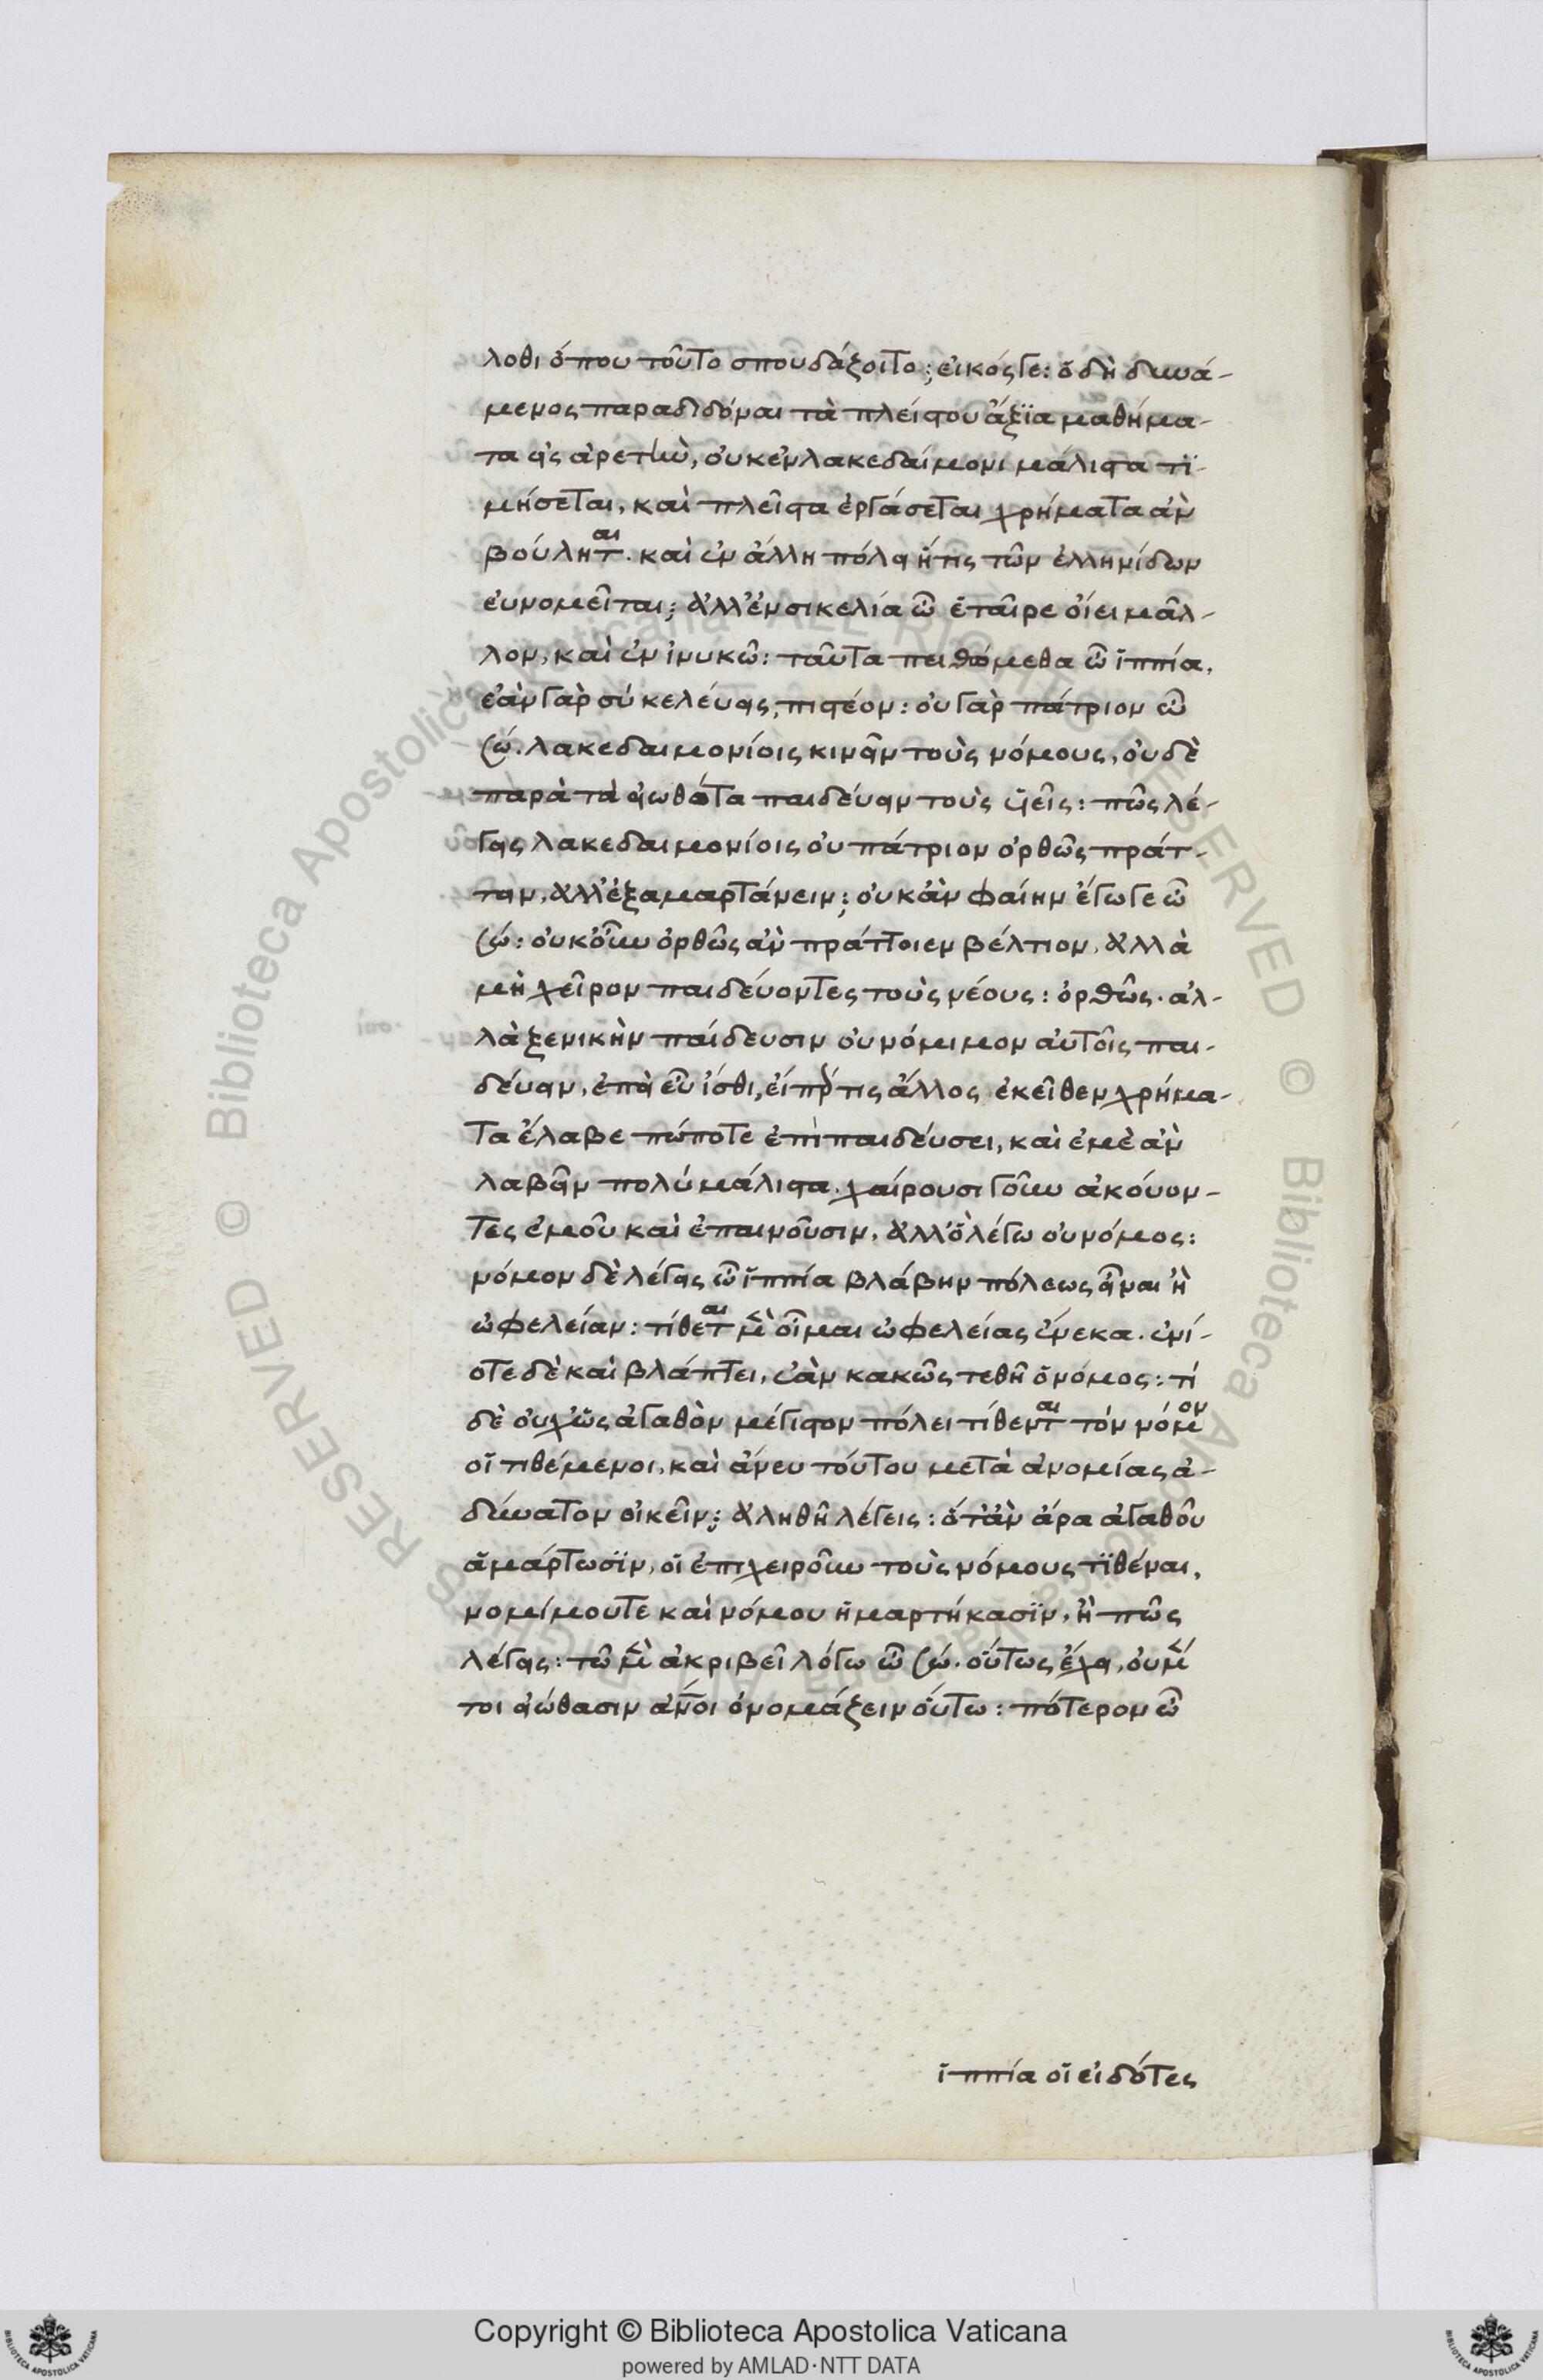 λοθι ὅπου τοῦτο σπουδάζοιτο; εἰκός γε: ὁ δὴ δυνά-
μενος παραδιδόναι τὰ πλείστου ἄξϊα μαθήμα-
τα εἰς ἀρετὴν, οὐκ ἐν λακεδαίμονι μάλιστα τι-
μήσεται, καὶ πλεῖστα ἐργάσεται χρήματα ἀν
βούληται. καὶ ἐν ἄλλη πόλει ἥτις τῶν ἑλληνίδων
εὐνομεῖται; ἀλλ' ἐν σικελία ὦ ἑταῖρε οἴει μᾶλ-
λον, καὶ ἐν ἰνυκῶ: ταῦτα πειθόμεθα ὦ ἱππία,
ἐὰν γὰρ σὺ κελεύεις, πιστέον: οὐ γὰρ πάτριον ὦ
σώ. λακεδαιμονίοις κινεῖν τοὺς νόμους, οὐδὲ
παρὰ τὰ εἰωθότα παιδεύειν τοὺς ὑεῖς: πῶς λέ-
γεις λακεδαιμονίοις οὐ πάτριον ὀρθῶς πράτ-
τειν, ἀλλ' ἐξαμαρτάνειν; οὐκ ἂν φαίην ἔγωγε ὦ
σώ: οὐκοῦν ὀρθῶς ἂν πράττοιεν βέλτιον, ἀλλὰ
μὴ χεῖρον παιδεύοντες τοὺς νέους: ὀρθῶς. ἀλ-
λὰ ξενικὴν παίδευσιν οὐ νόμιμον αὐτοῖς παι-
δεύειν, ἐπεὶ εὖ ἴσθι, εἴπερ τις ἄλλος ἐκεῖθεν χρήμα-
τα ἔλαβε πώποτε ἐπὶ παιδεύσει, καὶ ἐμὲ ἂν
λαβεῖν πολὺ μάλιστα. χαίρουσι γοῦν ἀκούον-
τες ἐμοῦ καὶ ἐπαινοῦσιν, ἀλλ' ὃ λέγω οὐ νόμος:
νόμον δὲ λέγεις ὦ ἱππία βλάβην πόλεως εἶναι ἢ
ὠφελείαν: τίθεται μὲν οἶμαι ὠφελείας ἕνεκα. ἐνί-
οτε δὲ καὶ βλάπτει, ἐὰν κακῶς τεθῆ ὁ νόμος: τί
δὲ οὐχ ὡς ἀγαθὸν μέγιστον πόλει τίθενται τὸν νόμον
οἱ τιθέμενοι, καὶ ἄνευ τούτου μετὰ ἀνομίας ἀ-
δύνατον οἰκεῖν; ἀληθῆ λέγεις: ὅτ' ἂν ἄρα ἀγαθοῦ
ἁμάρτωσϊν, οἱ ἐπιχειροῦν τοὺς νόμους τϊθέναι,
νομίμου τε καὶ νόμου ἡμαρτήκασϊν, ἢ πῶς
λέγεις: τῶ μὲν ἀκριβεῖ λόγω ὦ σώ. οὕτως ἔχει, οὐ μέν
τοι εἰώθασιν ἄνοι ὀνομάζειν οὕτω: πότερον ὦ
ἱππία οἱ εἰδότες
Copyright © Biblioteca Apostolica Vaticana
powered by AMLAD·NTT DATA